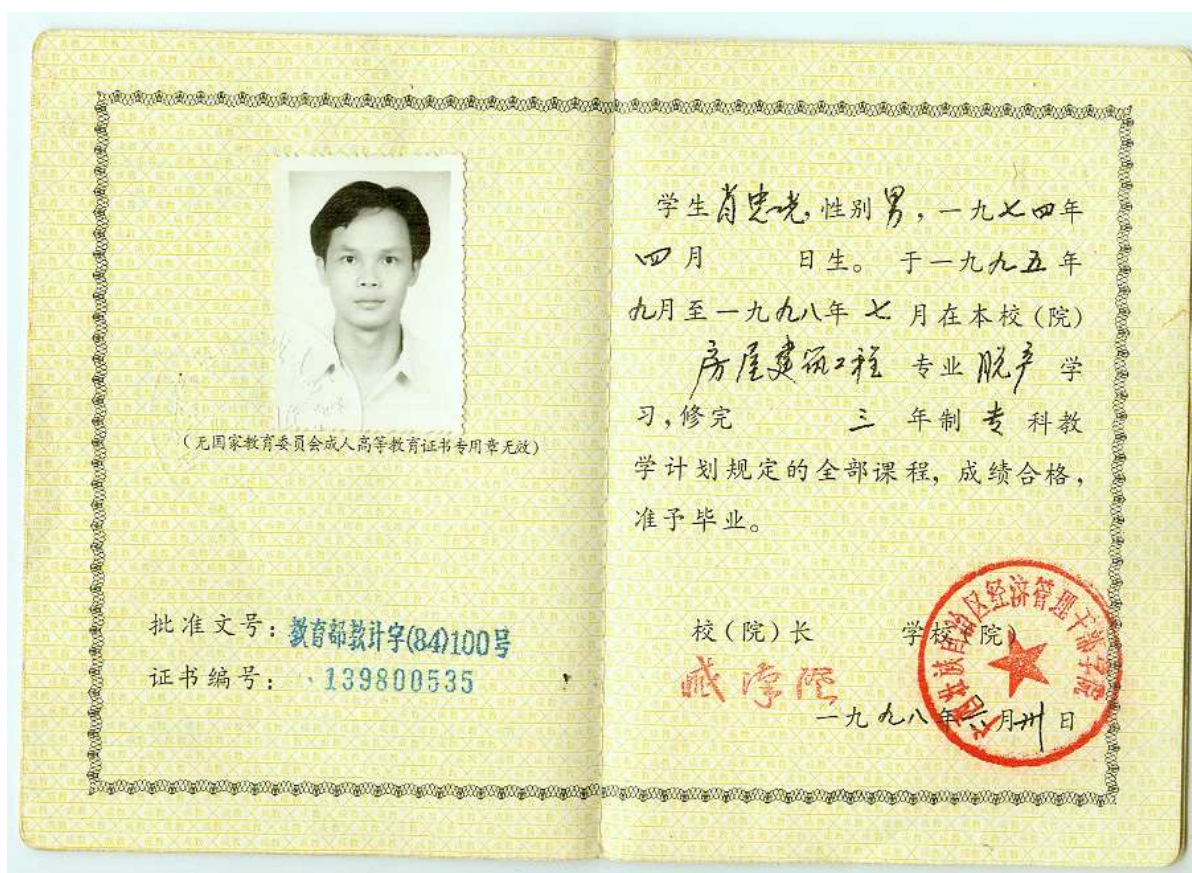 (无国家教育委员会成人高等教育证书专用章无效)
批准文号: 教育部教计字(84)100号
证书编号: 139800535
学生肖忠光,性别男,一九七四年
四月 日生。于一九九五年
九月至一九九八年七月在本校(院)
房屋建筑工程 专业 脱产 学
习,修完 三 年制 专 科教
学计划规定的全部课程,成绩合格,
准予毕业。
校(院)长 学校(院)
广西壮族自治区经济管理干部学院
一九九八年 月卅日